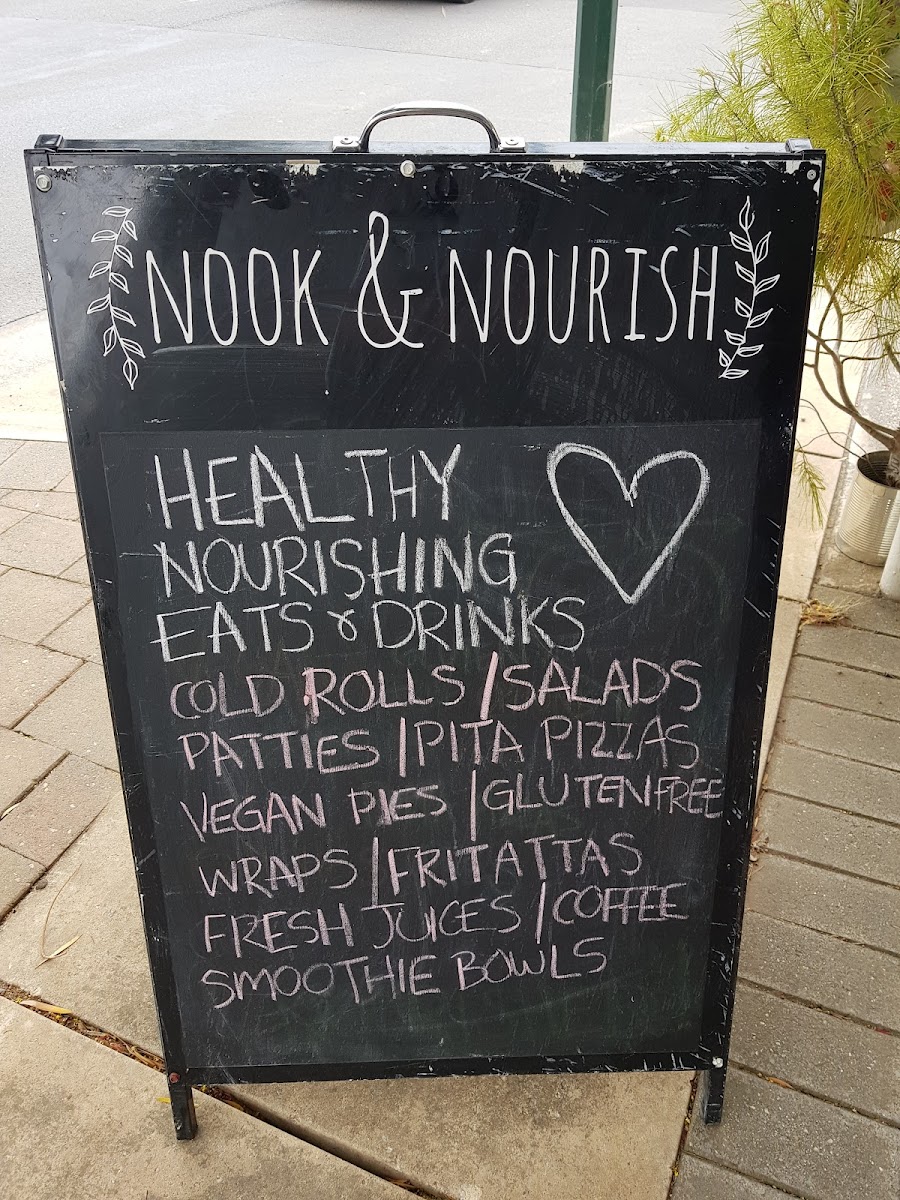 NOOK & NOURISH
HEALTHY
NOURISHING
EATS & DRINKS
COLD ROLLS / SALADS
PATTIES | PITA PIZZAS
VEGAN PIES | GLUTENFREE
WRAPS | FRITATTAS
FRESH JUICES | COFFEE
SMOOTHIE BOWLS